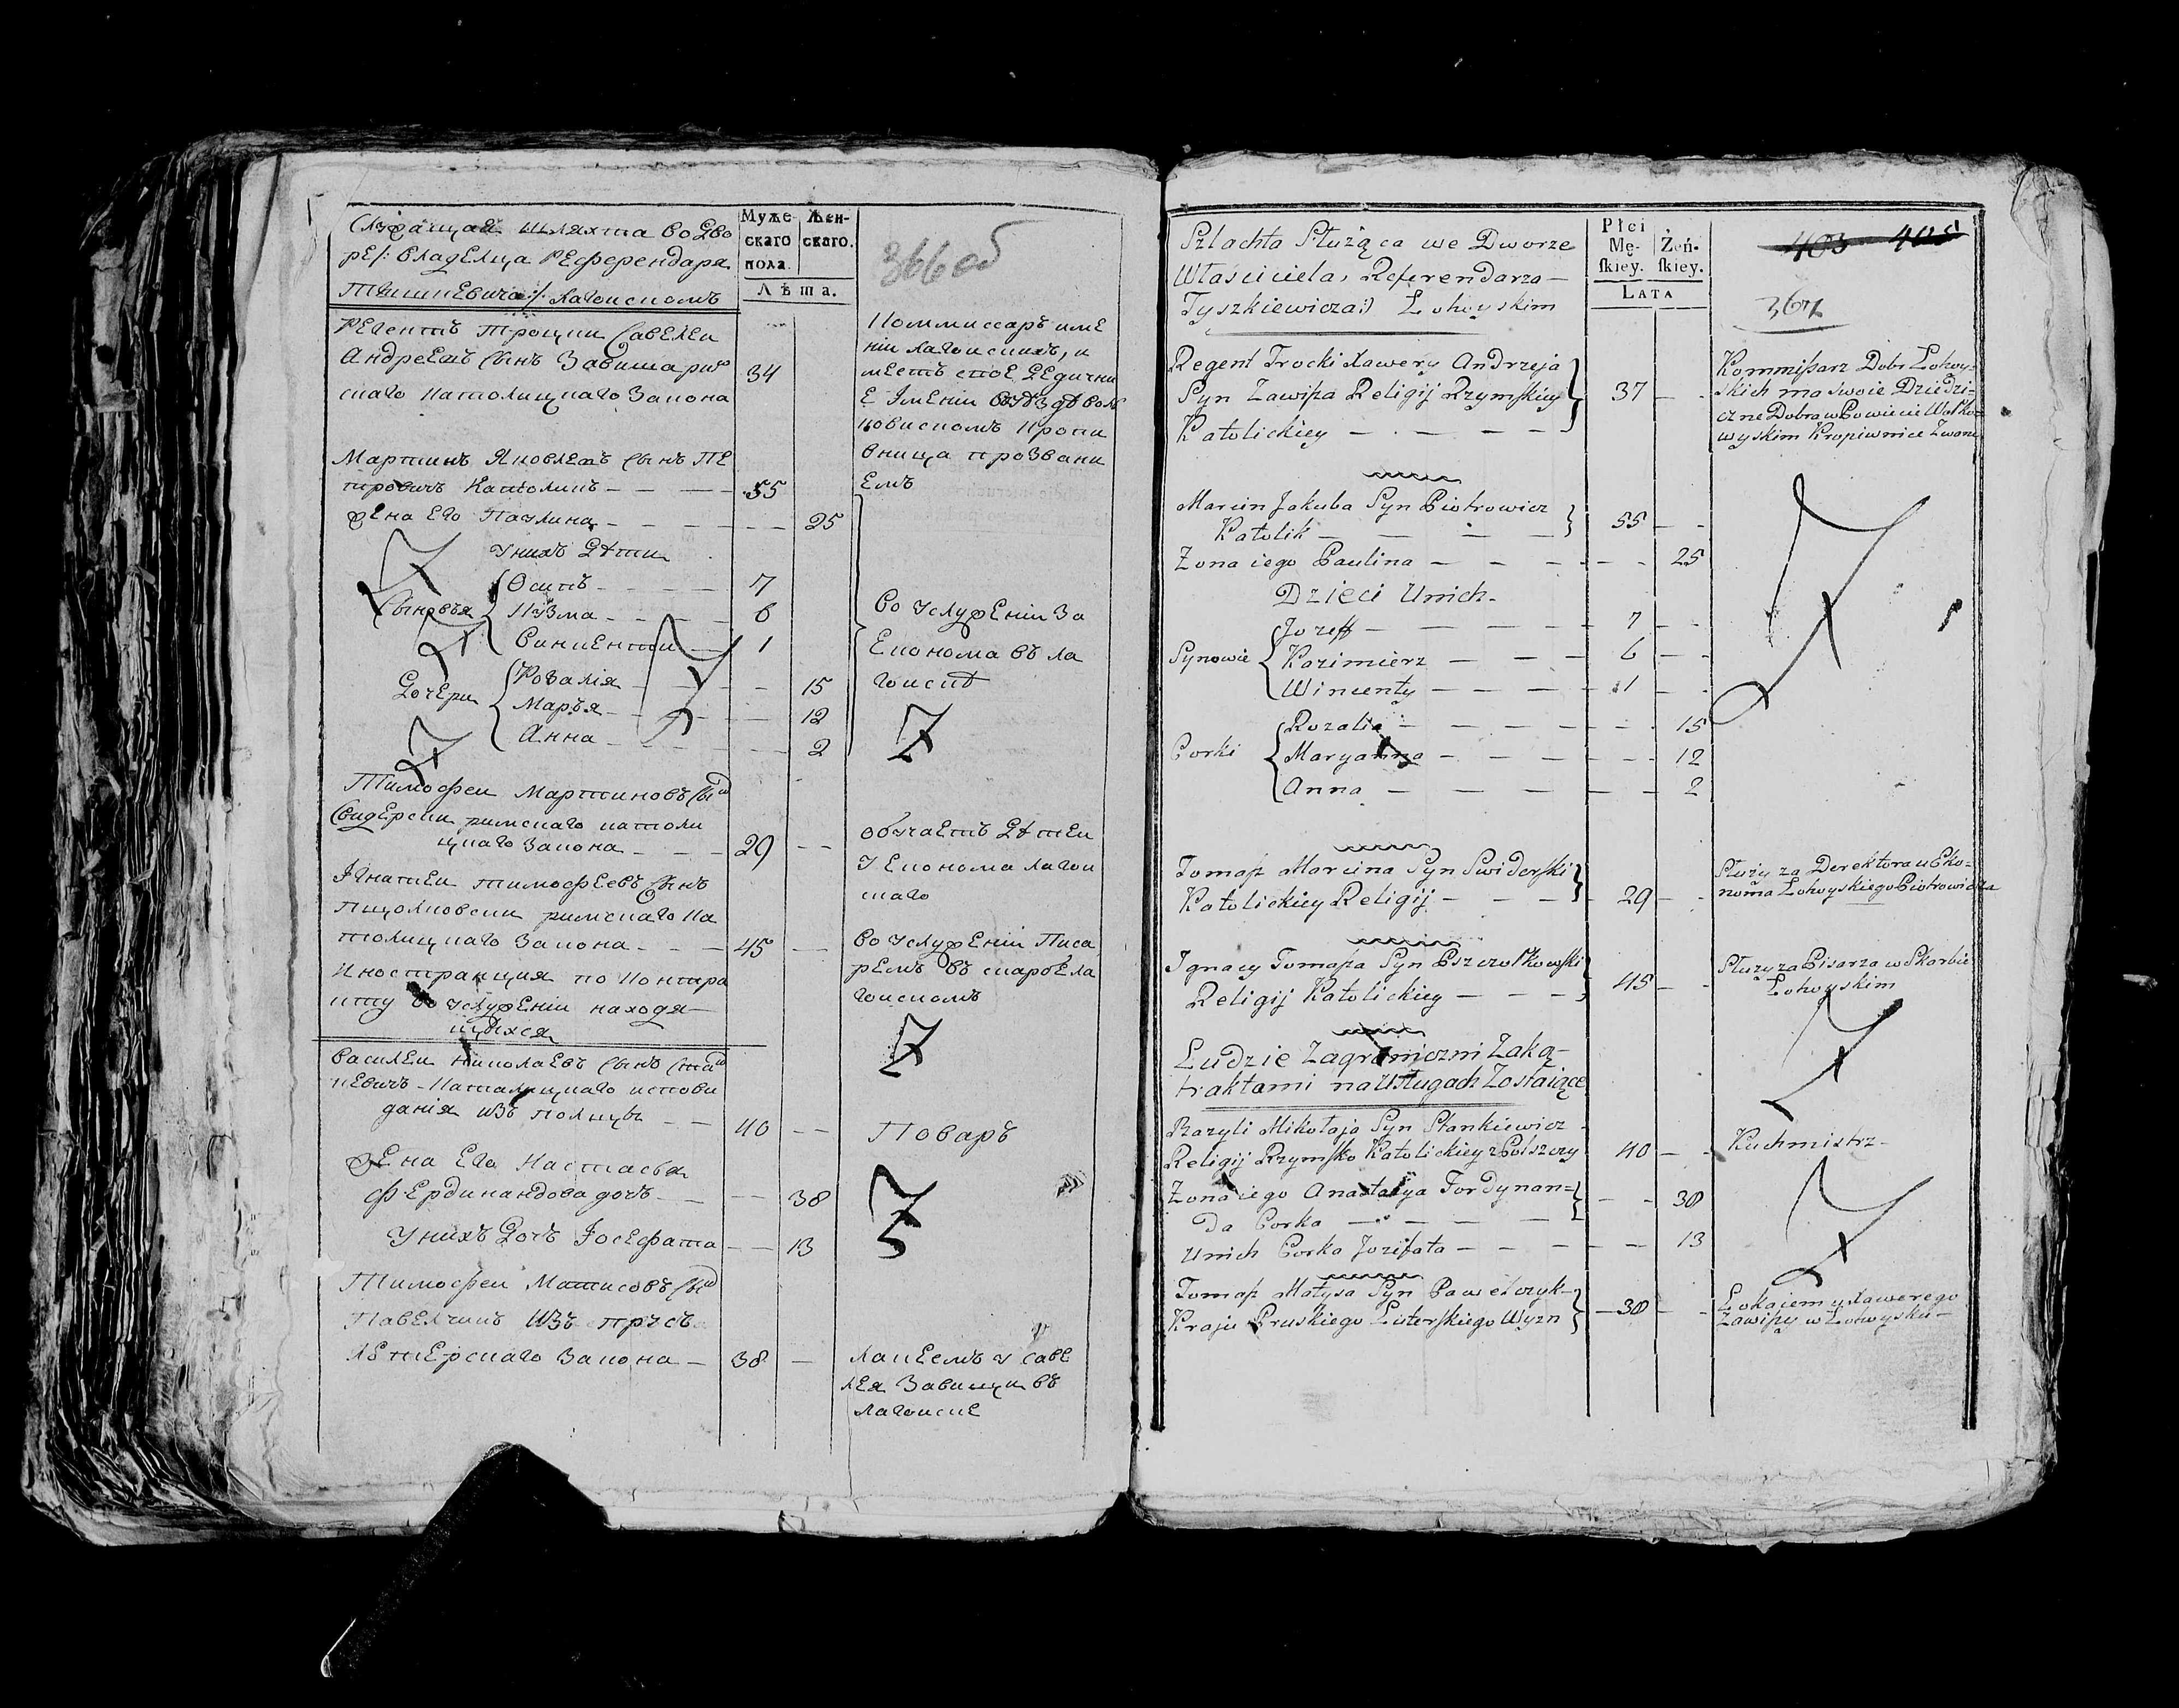 Служащая шляхта во дво
ре /: владельца Референдаря
Тышкевича :/ Лагойскомъ
Муже-
скаго
пола.
Жен-
скаго.
Лѣта.
366 об
Регентъ Троцки Савелеи
Андреевъ сынъ Завиша рим
скаго католицкаго закона
34
Коммиссаръ име
ніи лагоискихъ, и
меетъ свое дедични
е Имении въ уѣздѣ вол
ковискомъ Кропи
вница прозвани
емъ
Мартинъ Яковлевъ сынъ Пе
тровичъ Католикъ — — — 55
жена его Паулина — — — — 25
У нихъ дѣти
Сыновья
Осипъ — — — 7
Казма — — — 6
Винцентіи — 1
Дочери
Розалія — — — 15
Марья — — — 12
Анна — — — 2
во услуженіи за
економа въ ла
гоискѣ
Тимофеи Мартиновъ сын
Свидерски римскаго католи
цкаго закона — — — 29 — —
обучаетъ дѣтеи
у економа лагои
скаго
Игнатеи Тимофеевъ сынъ
Пщолковски римскаго ка
толицкаго закона — — — 45 — —
во услуженіи Писа
ремъ въ скарбе ла
гоискомъ
Иностранция по контра
кту во услуженіи находя
щихся
Василеи Николаевъ сынъ Стан
кевичъ Католицкаго испови
данія изъ полщы — — 40 — —
Поваръ
жена его Настасья
Фердинандова дочъ — — — 38
У нихъ дочъ Іосефата — — 13
Тимофеи Матисовъ сын
Павелчикъ изъ прусъ
лютерскаго закона — 38 —
лакеемъ у Саве
лея Завиши въ
лагоиске
Szlachta Służąca we Dworze
Właściciela, Referendarza
Tyszkiewicza:) Łohoyskim
Płci
Mę-
skiey.
Żeń-
skiey.
Lata
403 405
367
Regent Trocki Xawery Andrzeja
Syn Zawisza Religij Rzymskiey
Katolickiey — — — —
37 — —
Kommisarz Dobr Łohoy-
skich ma swoie Dziedzi-
czne Dobra w Powiecie Wołko
wyskim Kropiwnice Zwane
Marcin Jakuba Syn Piotrowicz
Katolik — — — —
55 — —
Zona iego Paulina — — — — 25
Dzieci Unich
Synowie
Jozeff — — — — 7 — —
Kazimierz — — — 6 — —
Wincenty — — — — 1 — —
Corki
Rozalia — — — — 15
Maryanna — — — — 12
Anna — — — — 2
Tomasz Marcina Syn Swiderski
Katolickiey Religij — — — 29 — —
Służy za Derektora u Eko-
noma Łohoyskiego Piotrowicza
Ignacy Tomasza Syn Pszczołkowski
Religij Katolickiey — — — 45 — —
Służy za Pisarza w Skarbie
Łohoyskim
Ludzie Zagraniczni Zaką-
traktami na Usługach Zostaiące
Bazyli Mikołaja Syn Stankiewicz
Religij Rzymsko Katolickiey z Polszczy 40 — —
Kuchmistrz
Zona iego Anastazya Ferdynan-
da Corka — — — — 38
Unich Corka Jozifata — — — — 13
Tomasz Matysa Syn Pawelczyk
Kraju Pruskiego Luterskiego Wyzn — 38 — —
Lokajem u Xawerego
Zawiszy w Łohoysku —